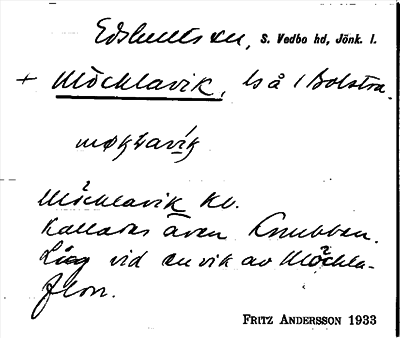 Edshults sn, S. Vedbo hd, Jönk. l.
+ Möcklavik, ls å 1 Bolstra.
møkʽlavík
Möcklavik Kv.
Kallades även Knubben.
Låg vid en vik av Möckla-
flon.
FRITZ ANDERSSON 1933